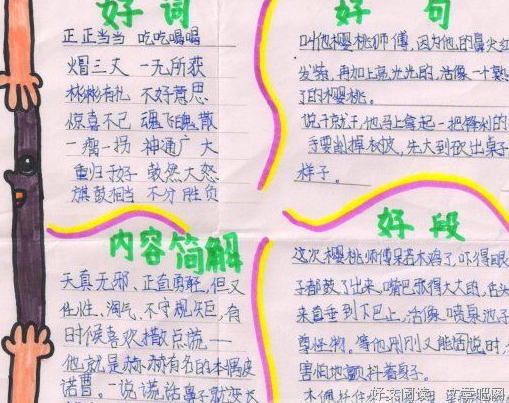 好词
正正当当 吃吃喝喝
火冒三丈 一无所获
彬彬有礼 不好意思
惊喜不已 魂飞魄散
一瘸一拐 神通广大
重归于好 勃然大怒
旗鼓相当 不分胜负
内容简解
天真无邪、正直勇敢,但又
任性、淘气、不守规矩,有
时候喜欢撒点谎——
他就是赫赫有名的木偶皮
诺曹。一说谎话鼻子就变大
好句
叫他樱桃师傅,因为他的鼻尖红
发紫,再加上亮光光的,活像一个熟
了的樱桃。
说干就干,他马上拿起一把锋利的
要削掉树皮,先大到砍出桌子
样子。
好段
这次樱桃师傅呆若木鸡了,吓得眼
子都鼓了出来,嘴巴张得大大的,舌头
来直垂到下巴上,活像喷泉池子
那怪物。等他刚刚又能话说时,
害怕地颤抖着身子。
好文阅读 文章吧网